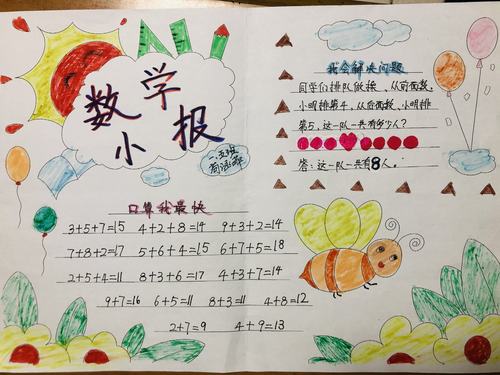 数学
小报
口算我最快
3+5+7=15 4+2+8=14 9+3+2=14
7+8+2=17 5+6+4=15 6+7+5=18
2+5+4=11 8+3+6=17 4+3+7=14
9+7=16 6+5=11 8+3=11 4+8=12
2+7=9 4+9=13
我会解决问题
同学们排队做操，从前面数，
小明排第4，从后面数，小明排
第5，这一队一共有多少人？
答：这一队一共有8人。